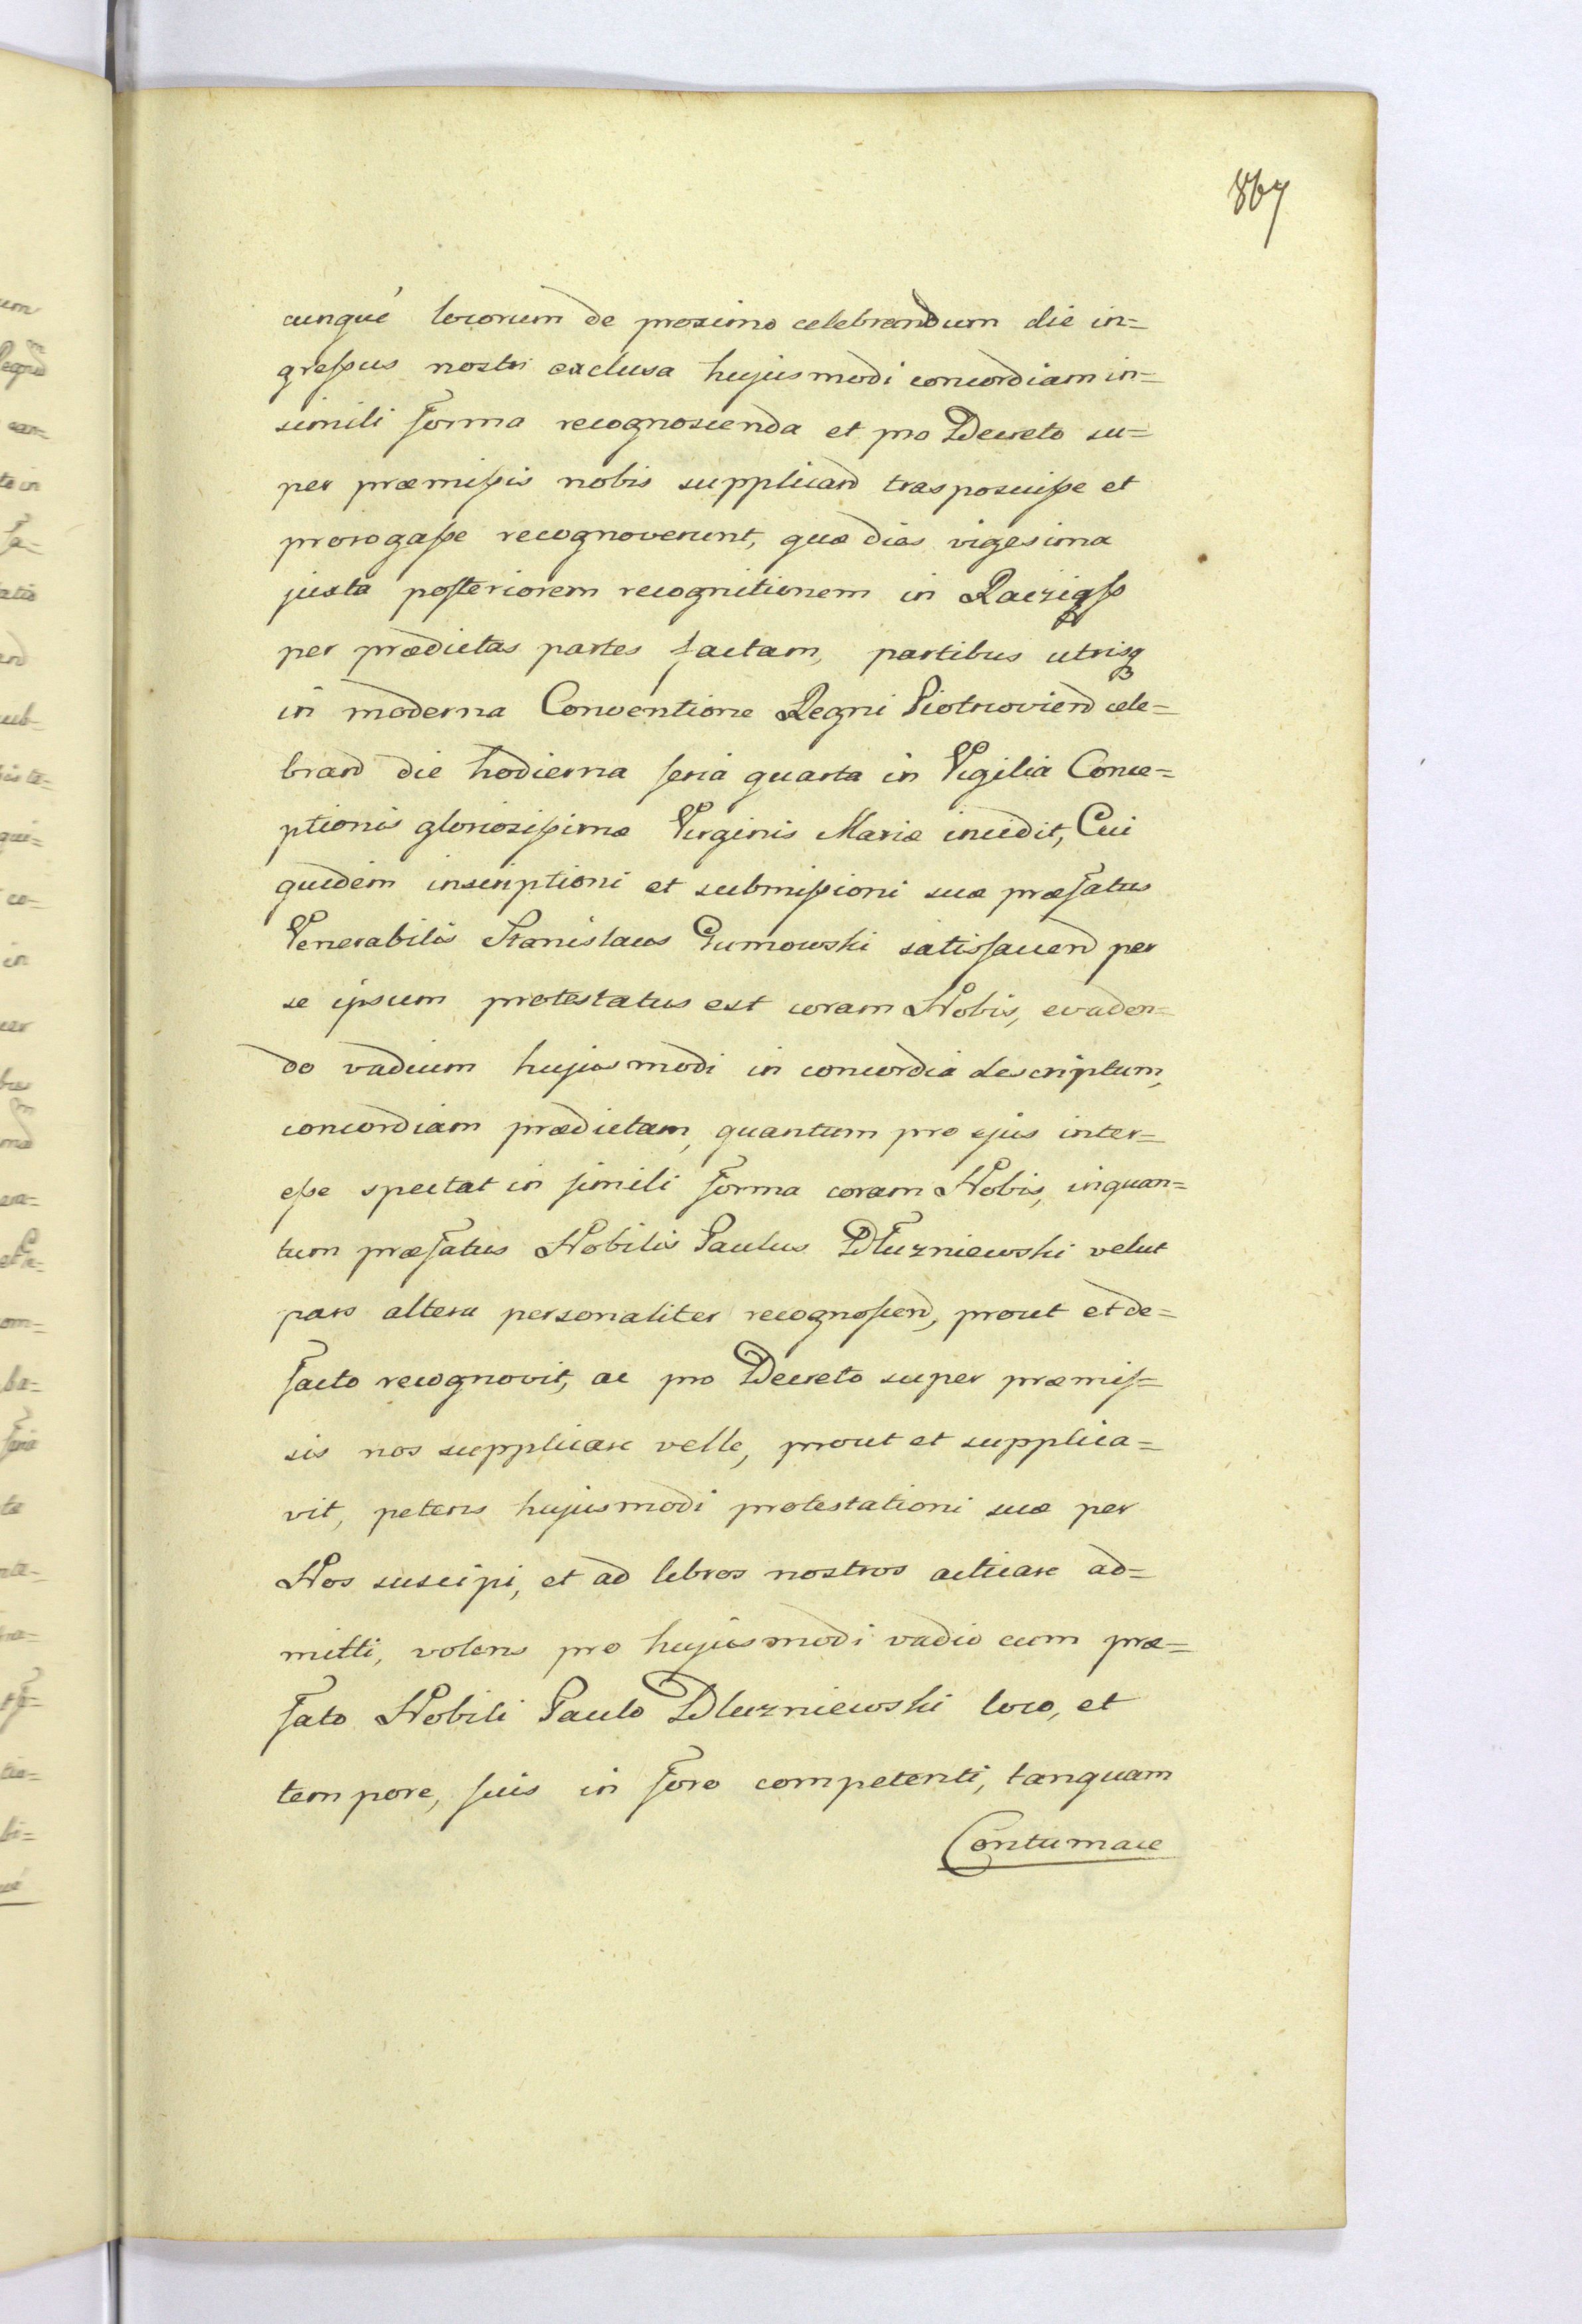 867
cunqué locorum de proximo celebrandum die in=
greſsus nostri exclusa hujusmodi concordiam in=
simili forma recognoscenda et pro Decreto su=
per præmiſsis nobis supplicand trasposuiſse et
prorogaſse recognoverunt, quæ dies vigesima
juxta poſteriorem recognitionem in Racziąſs
per prædictas partes factam, partibus utrisq
in moderna Conventione Regni Piotrcoviend cele=
brand die hodierna feria quarta in Vigilia Conce=
ptionis gloriosiſsimæ Virginis Mariæ incidit, Cui
quidem inscriptioni et submiſsioni suæ præfatus
Venerabilis Stanislaus Gumowski satisfacend per
se ipsum protestatus est coram Nobis, evaden=
do vadium hujusmodi in concordia descriptum,
concordiam prædictam, quantum pro ejus inter=
eſse spectat in ſimili forma coram Nobis, inquan=
tum præfatus Nobilis Paulus Dłuzniewski velut
pars altera personaliter recognoſcend, prout et de=
facto recognovit, ac pro Decreto super præmiſ=
sis nos supplicare velle, prout et supplica=
vit, petens hujusmodi protestationi suæ per
Nos suscipi, et ad lebros nostros acticare ad=
mitti, volens pro hujusmodi vadio cum præ=
fato Nobili Paulo Dluzniewski loco, et
tempore, ſuis in foro competenti, tanquam
Contumace